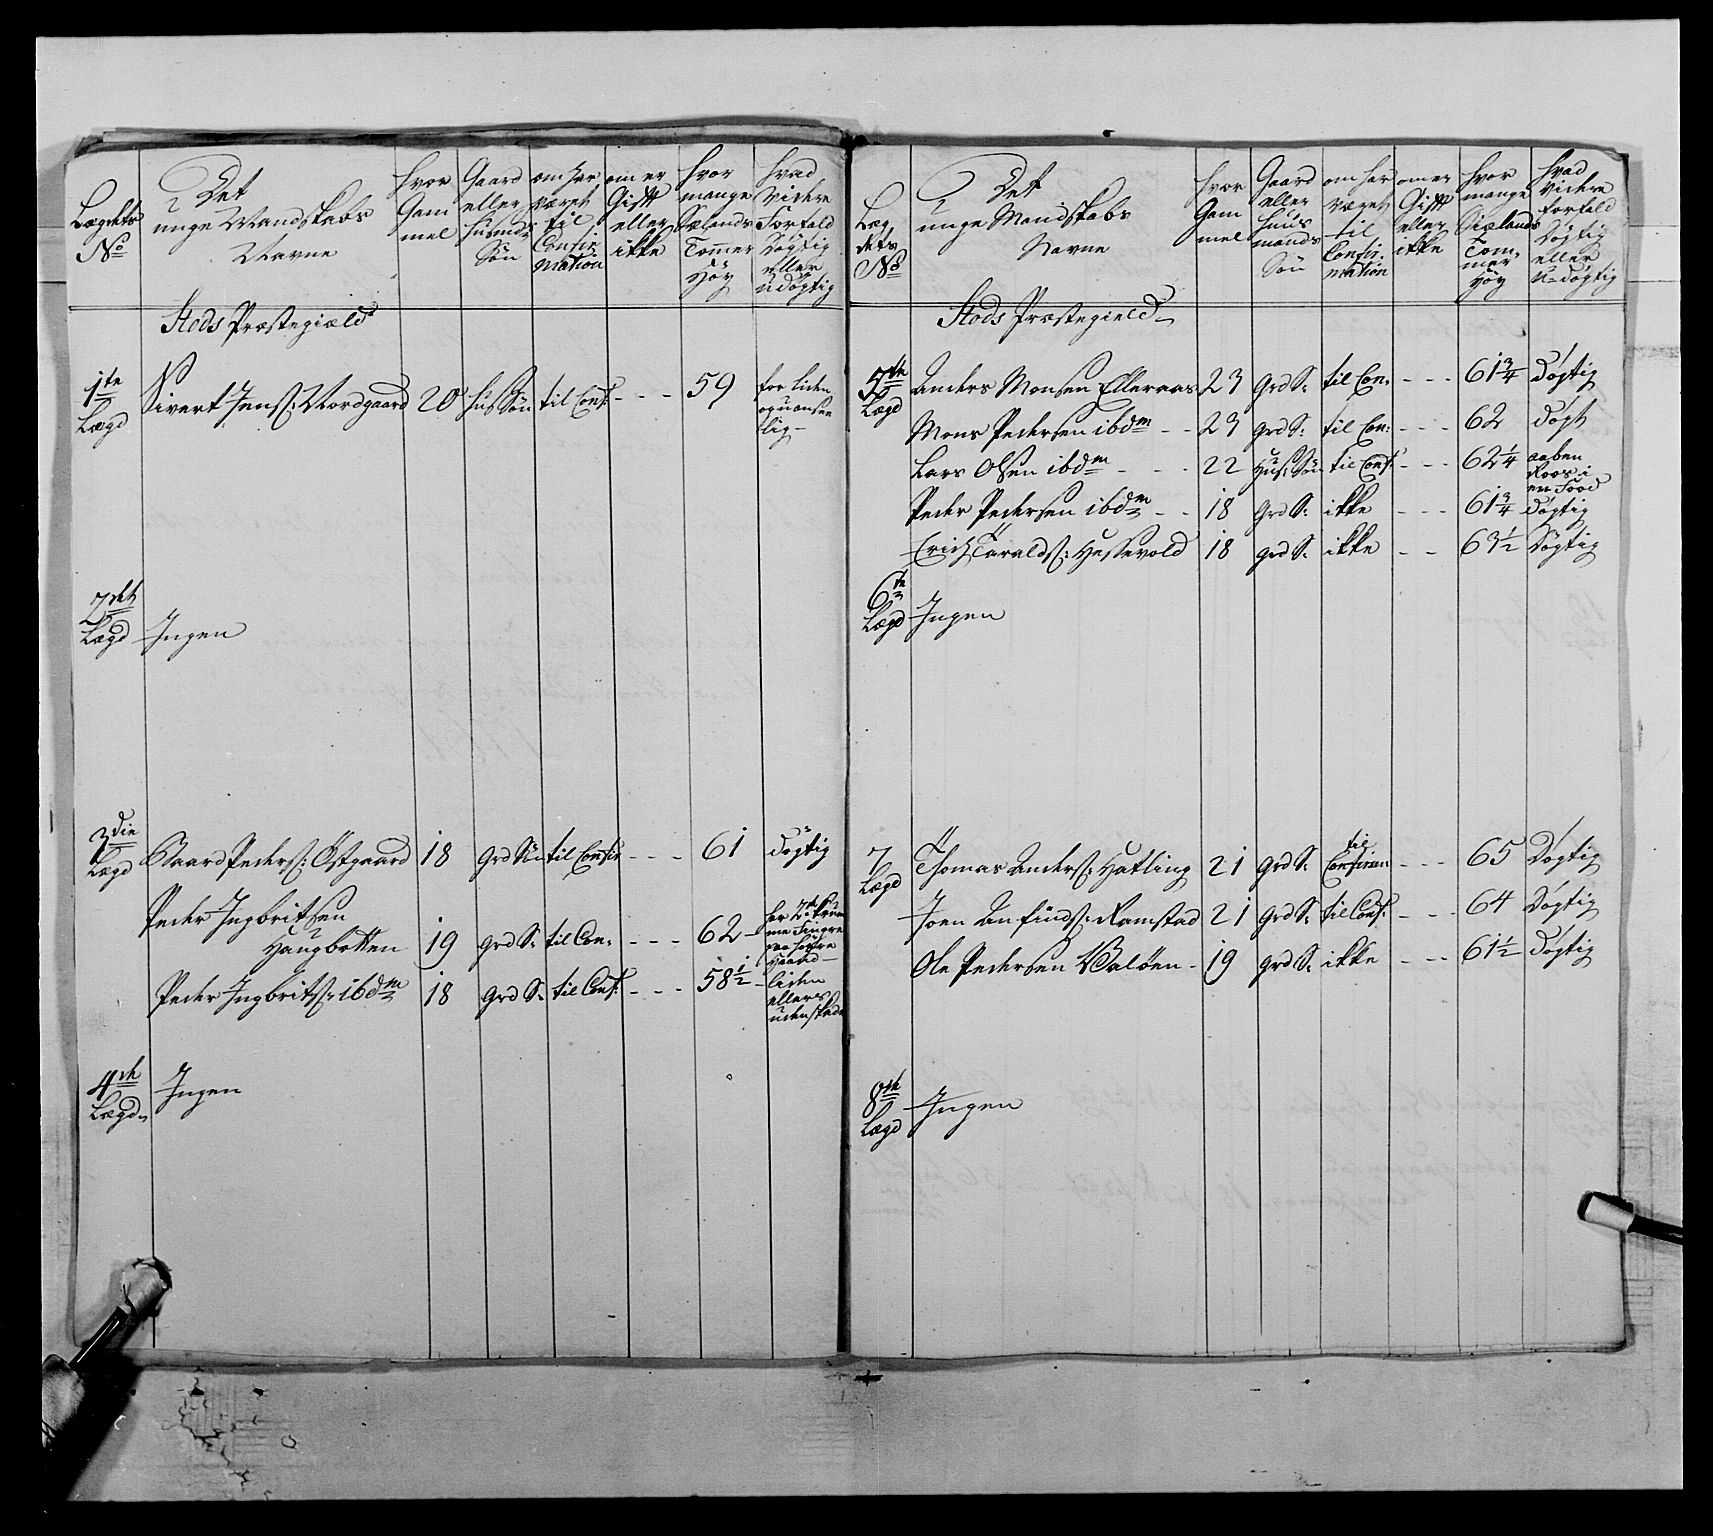 Lægdets No
Det unge Mandskabs Navne
hvor Gammel
Gaard eller Husmds Søn
om har været til Confirmation
om er Gift eller ikke
hvor mange Sælands Tommer Höy
hvad Videre Forfald Døgtig eller Udøgtig
Stods Præstegiæld
1te Lægd Sivert Jens: Nordgaard 20 Hus Søn til Conf: - - - 59 for liden og uansee lig -
2det Lægd Ingen
3die Lægd Baard Peders: Östgaard 18 Grd Sön til Confir - - - 61 Døgtig
Peder Ingbritsen
Haugbotten 19 Grd S: til Con: - - - 62 - har 2de Fingre Haand -
Peder Ingbrits: ibdm 18 Grd S: til Conf: - - - 58 1/2 - liden ellers uden skade
4de Lægd Ingen
Læg dets No
Dett unge Mandskabs Navne
hvor Gammel
Gaard eller Huus mands Sön
om har været til Confirmation
om er Gift eller ikke
hvor mange Siælands Tommer Höy
hvad Videre Forfald Døgtig eller U-døgtig
Stods Præstegield
5te Lægd Anders Monsen Elleraas 23 Grd S: til Con: - - - 61 3/4 Døgtig
Mons Pedersen ibdm - - 23 Grd S: til Con: - - - 62 Døgt
Lars Olsen ibdm - - - 22 Hus: Søn til Conf: - - - 62 1/4 aaben Roos i en Food
Peder Pedersen ibdm - - 18 Grd S: ikke - - - 61 3/4 Døgtig
Erich Taralds: Hessevold 18 Grd S: ikke - - 63 1/2 Døgtig
6te Lægd Ingen
7 Lægd Thomas Anders: Hatling 21 Grd S: til Confirma - - - 65 Døgtig
Joen Anfinds: Ramstad 21 Grd S: til Conf: - - - 64 Døgtig
Ole Pedersen Valøen - 19 Grd S: ikke - - - 61 1/2 Døgtig
8de Lægd Ingen